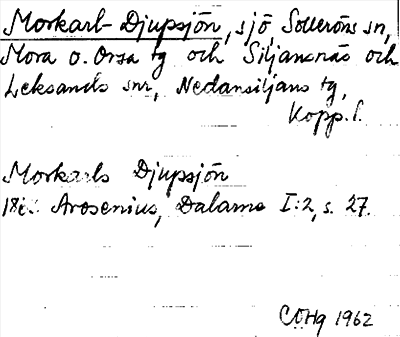 Morkarl-Djupsjön, sjö, Solleröns sn,
Mora o. Orsa tg och Siljansnäs och
Leksands snr, Nedansiljans tg,
Kopp. l.
Morkarls Djupsjön
Arosenius, Dalarne I:2, s. 27.
COHg 1962